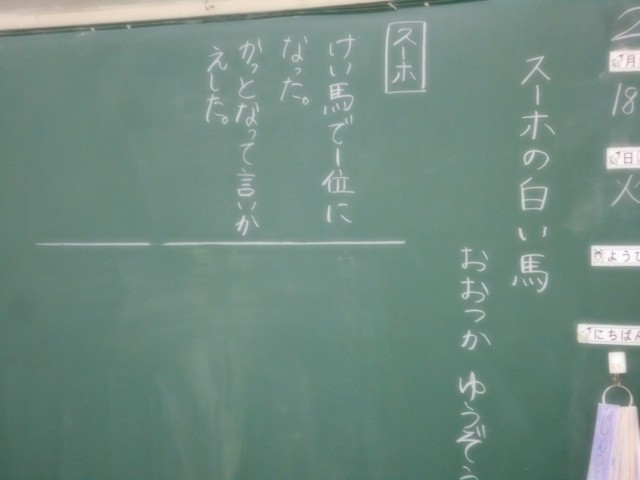 2
月
18
日
火
ようび
にちばん
スーホの白い馬
おおつか ゆうぞう
スーホ
けい馬で一位に
なった。
かっとなって言いか
えした。